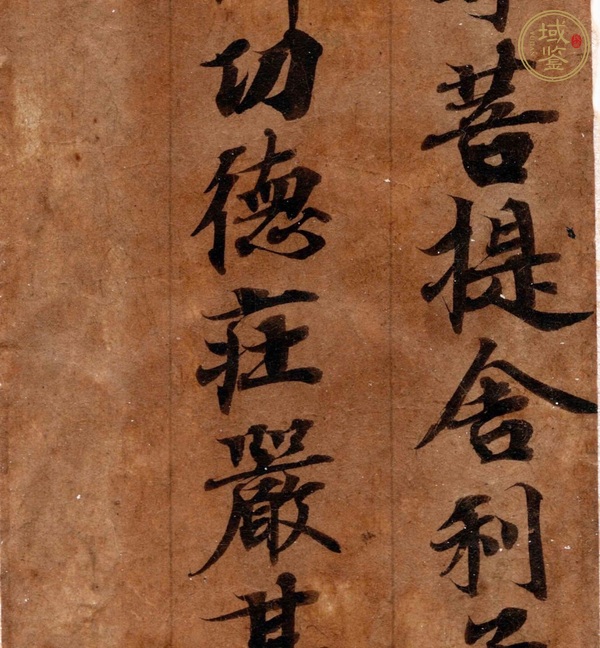 菩提舍利
功德莊嚴其
域鉴